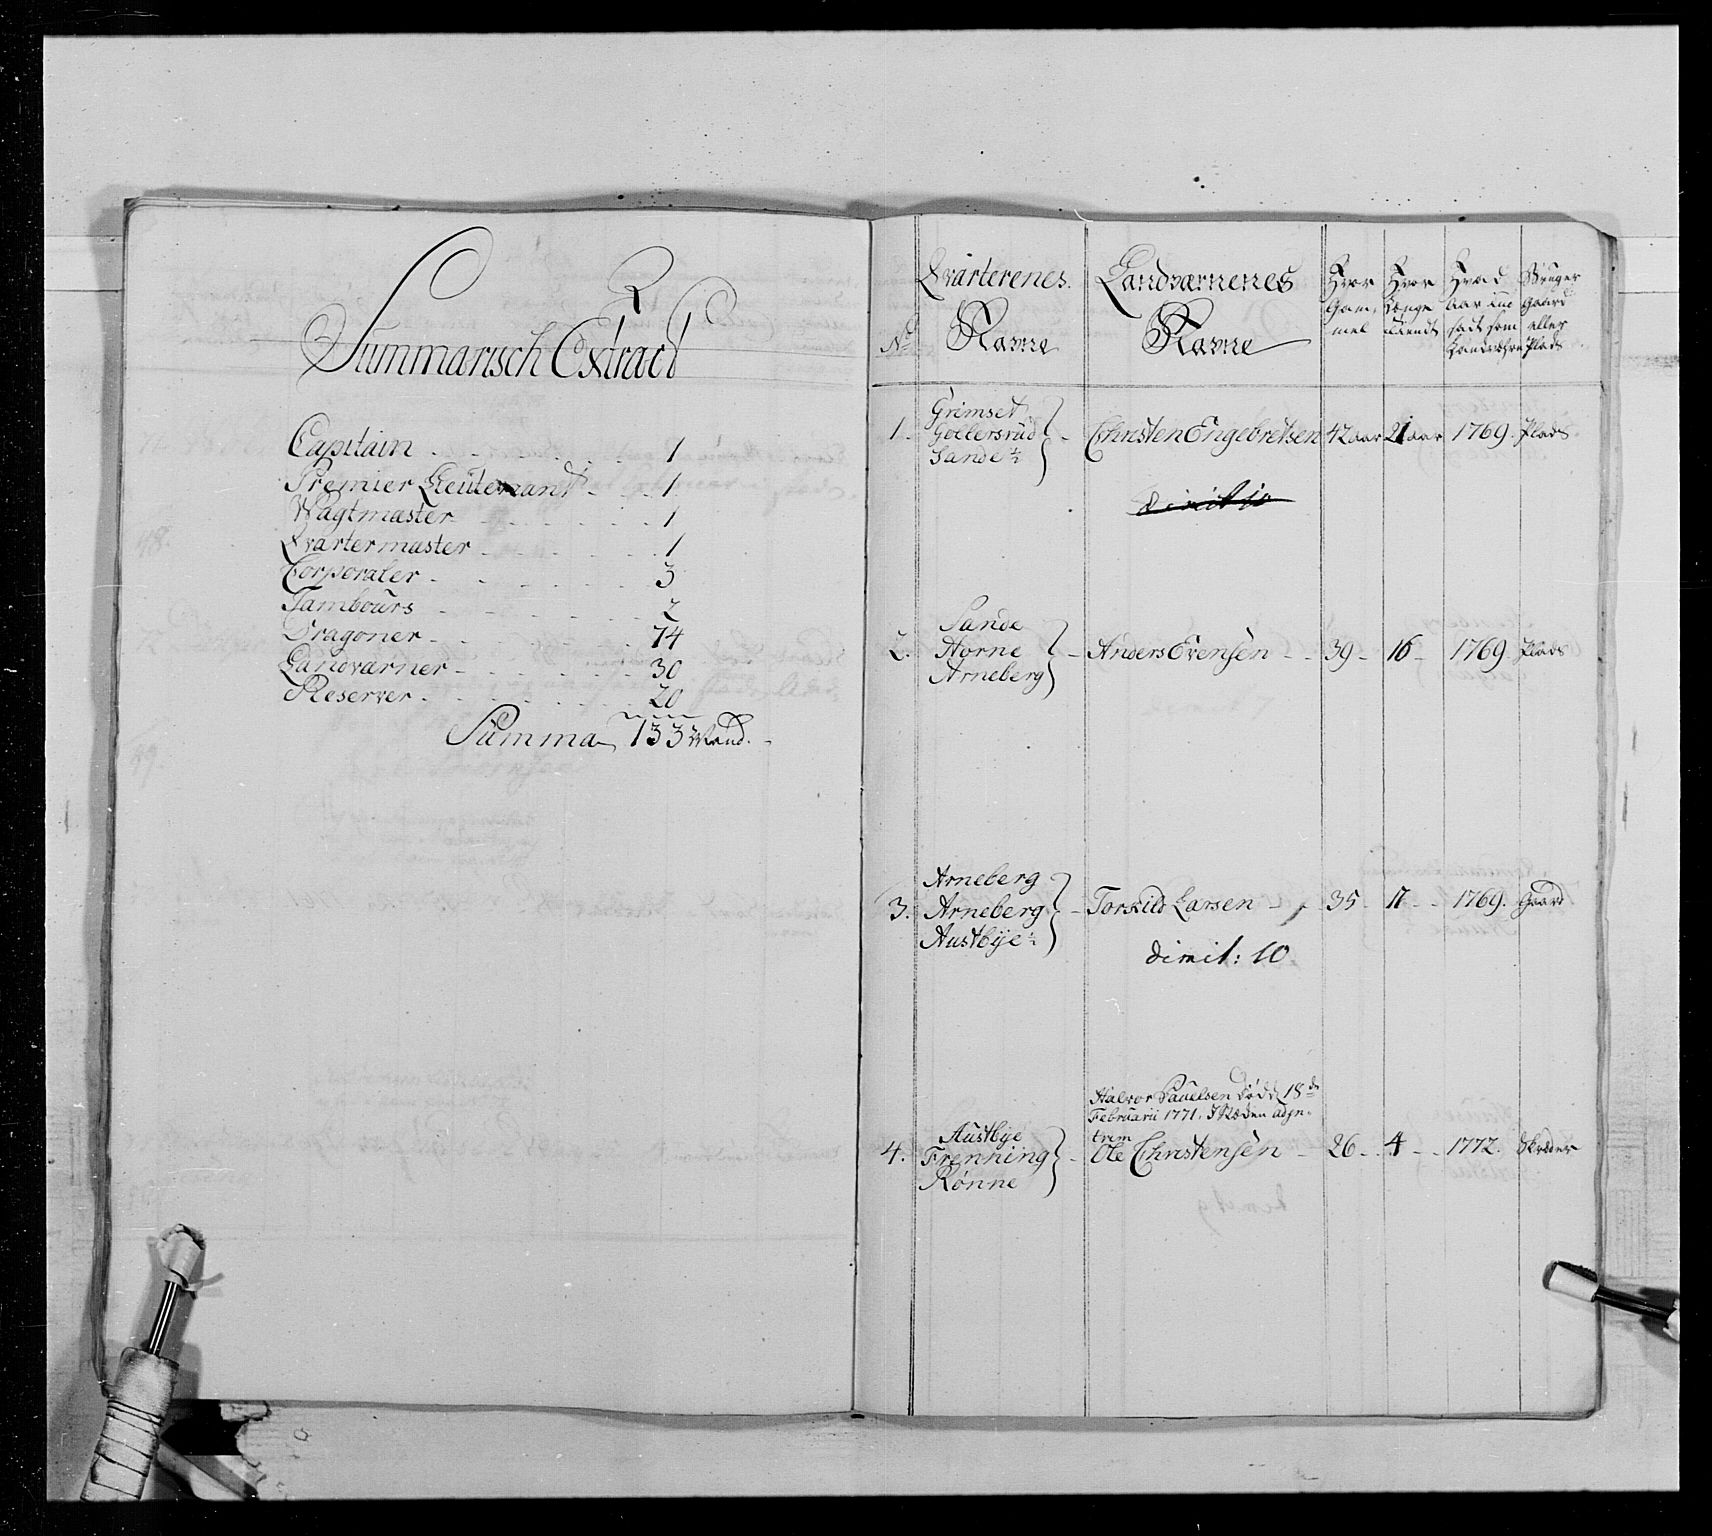 Summarisch Extract
Capitain - - - - - 1
Premier Lieutenant - - 1
Wagtmæster - - - - - 1
Qvartermæster - - - - - 1
Corporaler - - - - - 3
Tambours - - - - - 2
Dragoner - - - - - 74
Landværner - - - - - 30
Reserver - - - - - 20
Summa 133 Mand.
No
Qvarterenes
Navne
Landværnenes
Navne
Hvor
Gam-
mel
Hvor
længe
tient
Hvad
Aar ind
sadt som
Landværn
Bruger
Gaard
eller
Plads
1. Grimset
Gollersrud
Sande ½
Christen Engebretsen 42 aar 21 aar 1769. Plads
2. Sande
Horne
Arneberg
Anders Evensen - - 39 - 16 - 1769. Plads
3. Arneberg
Arneberg
Austbye ½
Torkild Larsen - 35 - 17 - - 1769. Gaard
dimit: 10
4. Austbye
Frenning
Rønne
Halvor Pauelsen Død d. 18de
Februarii 1771. I Stæden
Ole Christensen - 26 - 4 - - 1772.